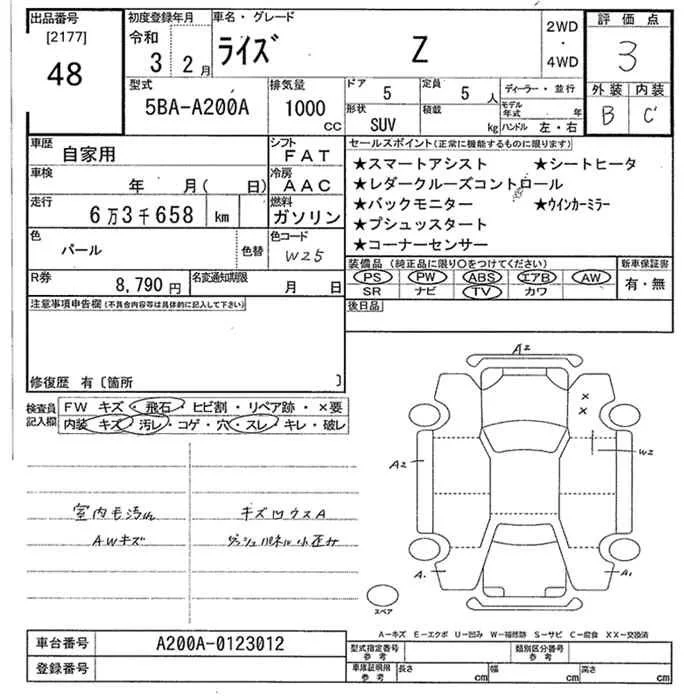 出品番号
[2177]
48
初度登録年月
令和
3 2月
車名・グレード
ライズ Z
2WD
・
4WD
評価点
3
外装 内装
B C'
型式
5BA-A200A
排気量
1000
CC
ドア 5
定員 5 人
形状 SUV
積載 kg
ディーラー・並行
モデル年式 年
ハンドル 左・右
車歴 自家用
シフト FAT
車検 年 月( 日)
冷房 AAC
走行 6万3千658 km
燃料 ガソリン
色 パール
色替
色コード W25
R券 8,790円
名変通知期限 月 日
セールスポイント(正常に機能するものに限ります)
★スマートアシスト ★シートヒータ
★レダークルーズコントロール
★バックモニター ★ウインカーミラー
★プシュッスタート
★コーナーセンサー
装備品(純正品に限り○をつけてください)
PS PW ABS エアB AW
SR ナビ TV カワ
新車保証書
有・無
後日品
注意事項申告欄(不具合内容等は具体的に記入して下さい)
修復歴 有〔箇所 〕
検査員記入欄
FW キズ・飛石・ヒビ割・リペア跡・×要
内装 キズ 汚レ・コゲ・穴・スレ・キレ・破レ
室内毛汚れ
AWキズ
キズ凹ウスA
ダッシュパネル小
A2
×
×
A2
W2
A1
A1
スペア
A―キズ E―エクボ U―凹み W―補修跡 S―サビ C―腐食 XX―交換済
車台番号 A200A-0123012
登録番号
型式指定番号 参考
類別区分番号 参考
車庫証明用 参考
長さ cm
幅 cm
高さ cm